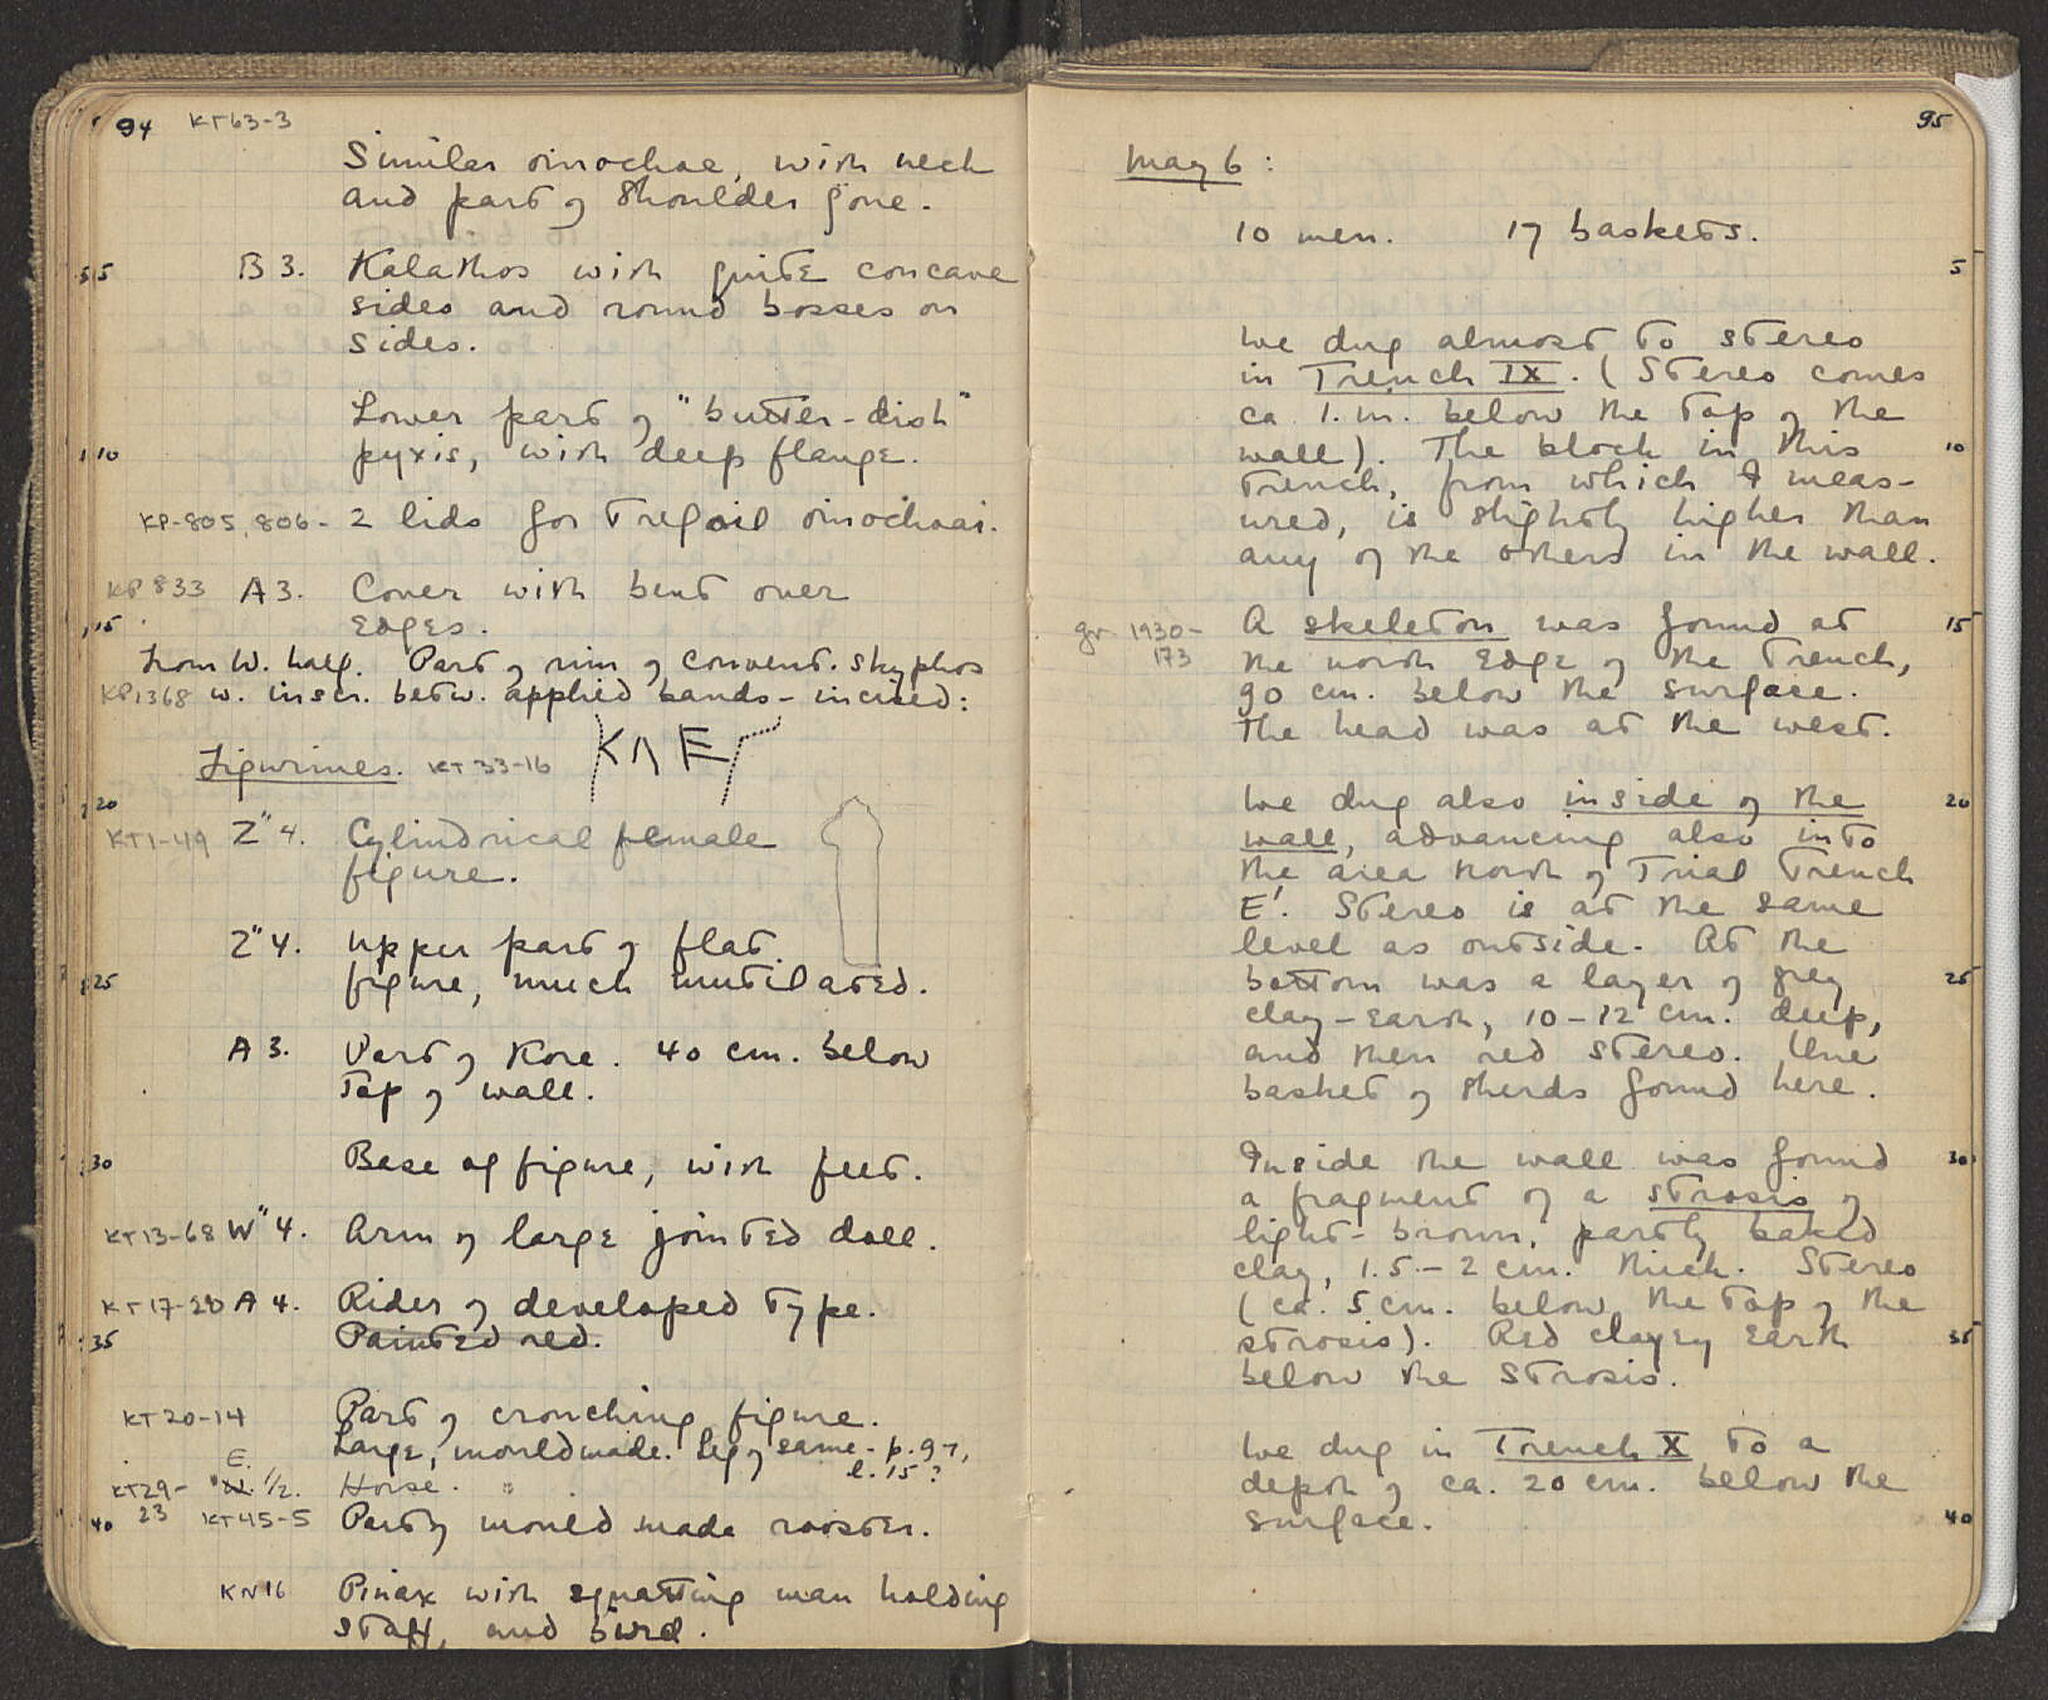 94 KT63-3
Similar oinochoe, with neck
and part of shoulder gone.
5 B 3. Kalathos with quite concave
sides and round bosses on
sides.
Lower part of "butter-dish"
10 pyxis, with deep flange.
KP-805, 806- 2 lids for trefoil oinochoai.
KP 833 A 3. Cover with bent over
15 edges.
From W. half. Part of rim of convent. skyphos
KP1368 w. inscr. betw. applied bands - incised:
ΚΛΕΓ
Figurines. KT 33-16
20
KT1-49 Z" 4. Cylindrical female
figure.
Z" 4. Upper part of flat
25 figure, much mutilated.
A 3. Part of Kore. 40 cm. below
top of wall.
30 Base of figure, with feet.
KT13-68 W" 4. Arm of large jointed doll.
KT17-20 A 4. Rider of developed type.
35 Painted red.
KT20-14 Part of crouching figure.
Large, mouldmade. Leg of same - p. 97,
l. 15?
KT29-23 E. 1/2. Horse. "
40 KT45-5 Part of mould made rooster.
KN16 Pinax with squatting man holding
staff, and bird.
95
May 6:
10 men. 17 baskets.
5
We dug almost to stereo
in Trench IX. (Stereo comes
ca 1. m. below the top of the
wall). The block in this 10
trench, from which I meas-
ured, is slightly higher than
any of the others in the wall.
gr. 1930-173 A skeleton was found at 15
the north edge of the trench,
90 cm. below the surface.
The head was at the west.
We dug also inside of the 20
wall, advancing also into
the area north of Trial Trench
E'. Stereo is at the same
level as outside. At the
bottom was a layer of grey 25
clay-earth, 10-12 cm. deep,
and then red stereo. One
basket of sherds found here.
Inside the wall was found 30
a fragment of a strosis of
light-brown, partly baked
clay, 1.5-2 cm. thick. Stereo
(ca. 5 cm. below the top of the
strosis). Red clayey earth 35
below the strosis.
We dug in Trench X to a
depth of ca. 20 cm. below the
surface. 40